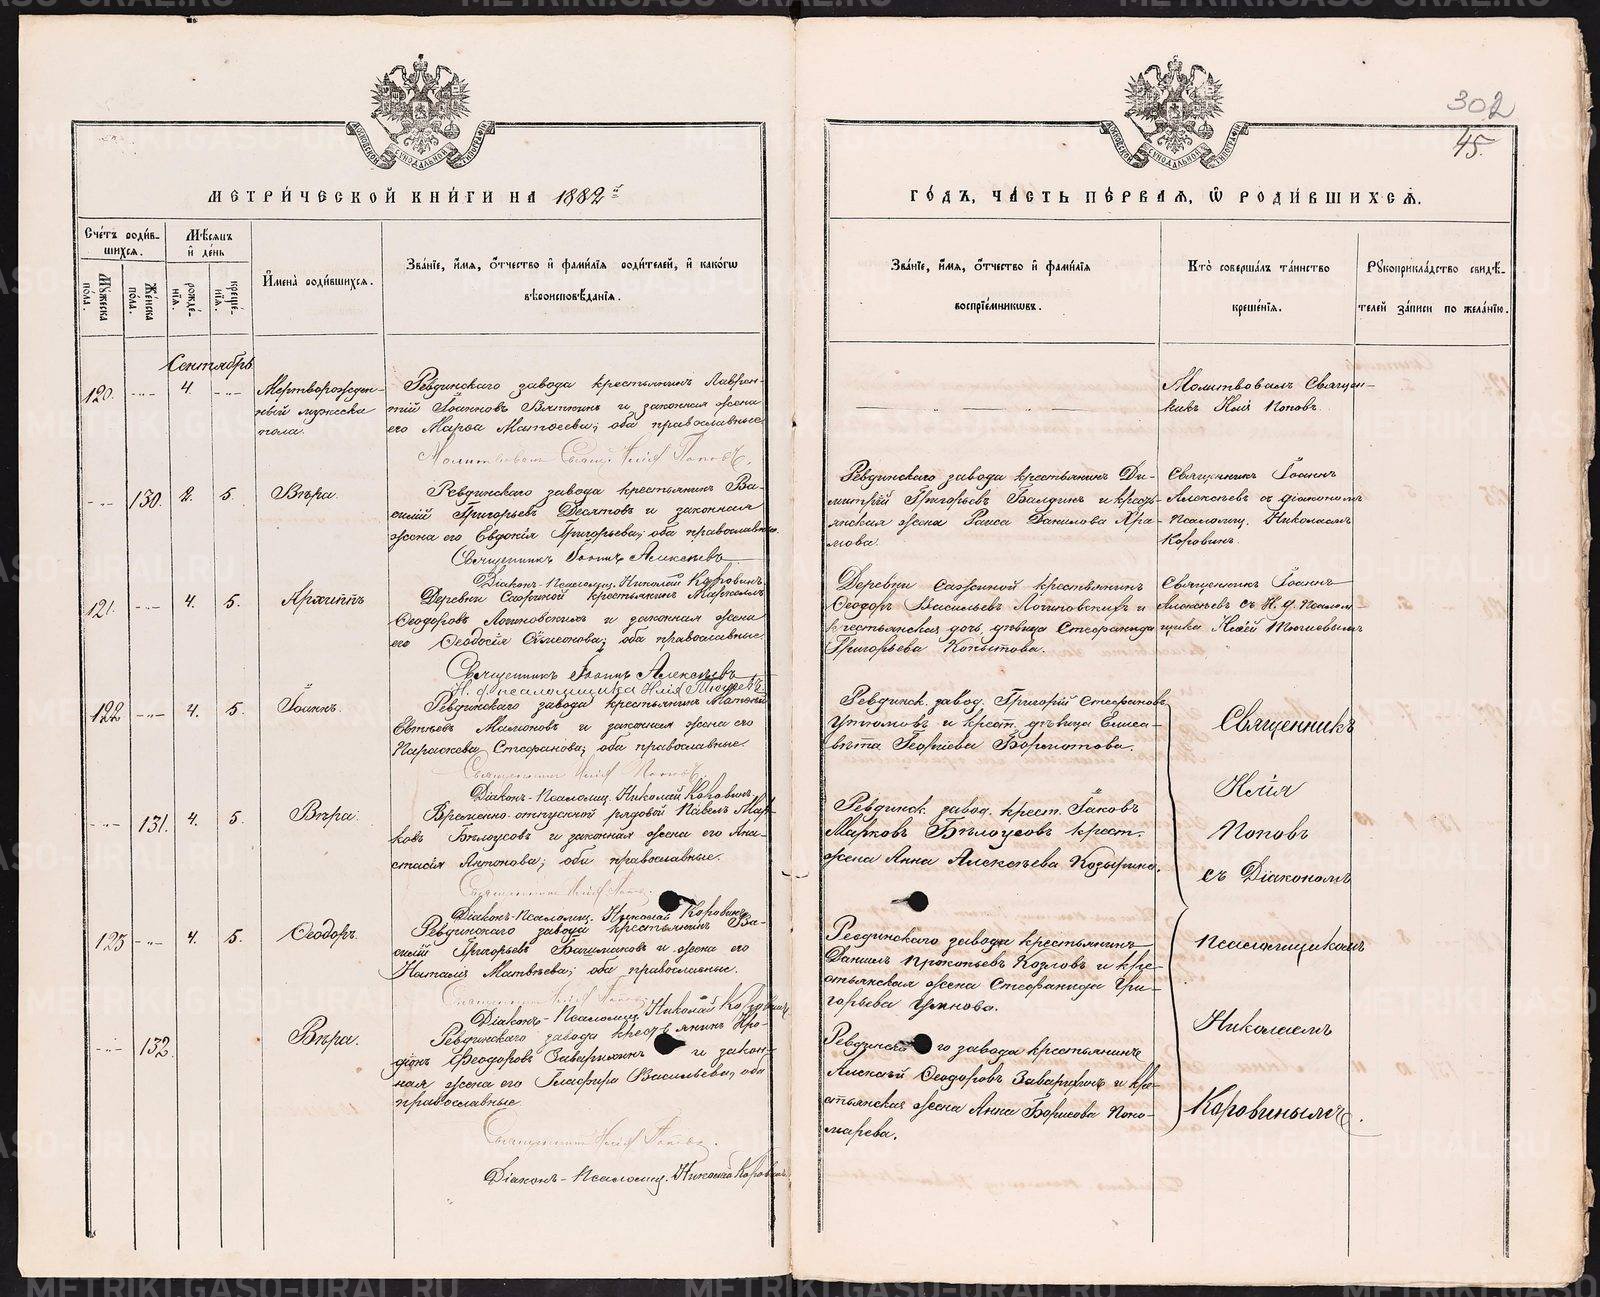 302
45.
МЕТРИ́ЧЕСКОЙ КНИ́ГИ НА 1882й
ГО́ДЪ, ЧА́СТЬ ПЕ́РВАЯ, Ѡ҆ РОДИ́ВШИХСѦ.
Сче́тъ роди́в-
шихсѧ.
Мꙋ́жеска по́ла.
Же́нска по́ла.
Мѣ́сѧцъ
и҆ де́нь
рожде́-
нїѧ.
креще́-
нїѧ.
И҆мена̀ роди́вшихсѧ.
Зва́нїе, и҆́мѧ, ѻ҆́тчество и҆ фамилїѧ роди́телей, и҆ како́гѡ
вѣроисповѣ́данїѧ.
Зва́нїе, и҆́мѧ, ѻ҆́тчество и҆ фами́лїѧ
воспрїе́мникѡвъ.
Кто̀ соверша́лъ та́инство
креще́нїѧ.
Рꙋкоприкла́дство свидѣ́-
телей за́писи по жела́нїю.
Сентябрь
120.
4.
Мертворожден-
ный мужеска
пола.
Ревдинскаго завода крестьянинъ Лаврен-
тій Іоанновъ Вяткинъ и законная жена
его Марѳа Матѳеева; оба православные
Молитвовалъ Священ-
никъ Илія Поповъ.
Молитвовалъ Свящ. Илія Поповъ.
130.
2.
5.
Вѣра.
Ревдинскаго завода крестьянинъ Ва-
силій Григорьевъ Десятовъ и законная
жена его Евдокія Григорьева; оба православные
Священникъ Іоаннъ Алексѣевъ
Діаконъ-Псаломщ. Николай Коровинъ
Ревдинскаго завода крестьянинъ Ди-
митрій Григорьевъ Балдинъ и кресть-
янская жена Раиса Данилова Хра-
мова.
Священникъ Іоаннъ
Алексѣевъ съ діакономъ
Псаломщ. Николаемъ
Коровинъ.
121.
4.
5.
Архиппъ
Деревни Сажиной крестьянинъ Маркеллъ
Ѳеодоровъ Логиновскихъ и законная жена
его Ѳеодосія Симеонова; оба православные.
Священникъ Іоаннъ Алексѣевъ
И. д. псаломщика Илія
Деревни Сажиной крестьянинъ
Ѳеодоръ Васильевъ Логиновскихъ и
крестьянская дочь дѣвица Стефанида
Григорьева Копытова.
Священникъ Іоаннъ
Алексѣевъ съ И. д. Псалом-
щика Иліей
122
4.
5.
Іоаннъ.
Ревдинскаго завода крестьянинъ Матвѣй
Евтѣевъ Мамоновъ и законная жена его
Параскева Стефанова; оба православные.
Священникъ Илія Поповъ.
Діаконъ-Псаломщ. Николай Коровинъ.
Ревдинск. завод. Григорій Стефановъ
Утюмовъ и крест. дѣвица Елиса-
вета Георгіева Бормотова.
131.
4.
5.
Вѣра.
Временно-отпускной рядовой Павелъ Мар-
ковъ Бѣлоусовъ и законная жена его Ана-
стасія Антонова; оба православные.
Священникъ Илія Поповъ.
Діаконъ-Псаломщ. Николай Коровинъ.
Ревдинск. завод. крест. Іаковъ
Марковъ Бѣлоусовъ крест.
жена Анна Алексѣева Козырина.
123
4.
5.
Ѳеодоръ.
Ревдинскаго завода крестьянинъ Ва-
силій Григорьевъ Башмаковъ и жена его
Наталія Матвѣева; оба православные.
Священникъ Илія Поповъ.
Діаконъ-Псаломщ. Николай Коровинъ
Ревдинскаго завода крестьянинъ
Даніилъ Прокопьевъ Козловъ и кре-
стьянская жена Стефанида Гри-
горьева
132.
Вѣра.
Ревдинскаго завода крестьянинъ Иро-
діонъ Ѳеодоровъ Заварихинъ и закон-
ная жена его Глафира Васильева; оба
православные
Священникъ Илія Поповъ.
Діаконъ-Псаломщ. Николай Коровинъ
Ревдинскаго завода крестьянинъ
Алексѣй Ѳеодоровъ Заварихинъ и кре-
стьянская жена Анна Борисова Поно-
марева.
Священникъ
Илія
Поповъ
съ Діакономъ
Псаломщикомъ
Николаемъ
Коровинымъ.
METRIKI.GASO-URAL.RU